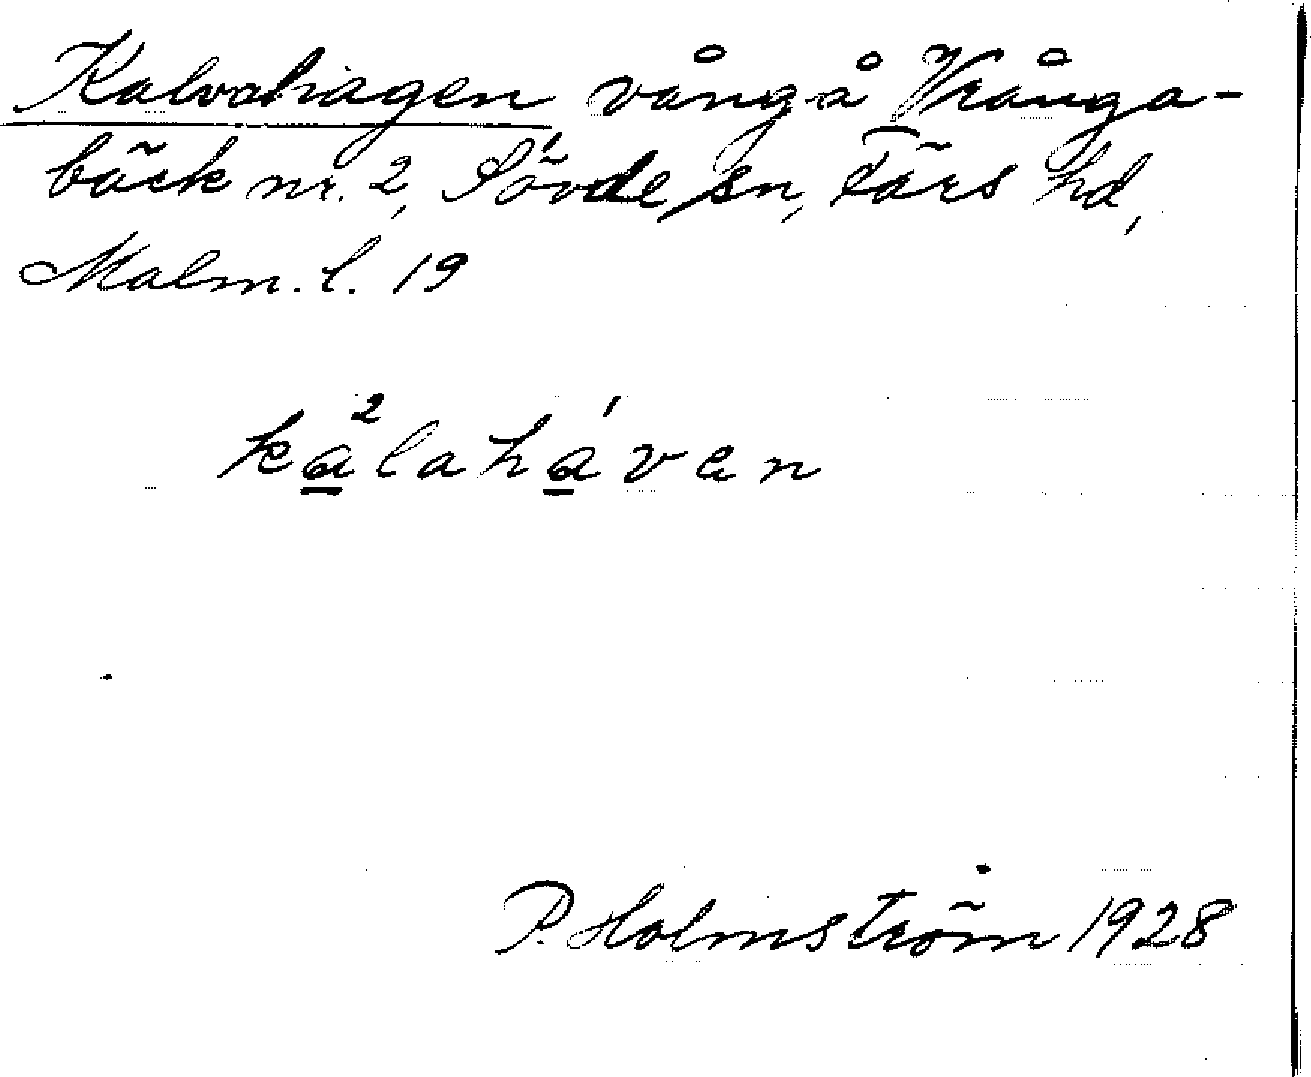 Kalvahagen vång å Vrånga-
bäck nr. 2, Sövde sn, Färs hd,
Malm. l. 19
ka²laha´ven
P. Holmström 1928